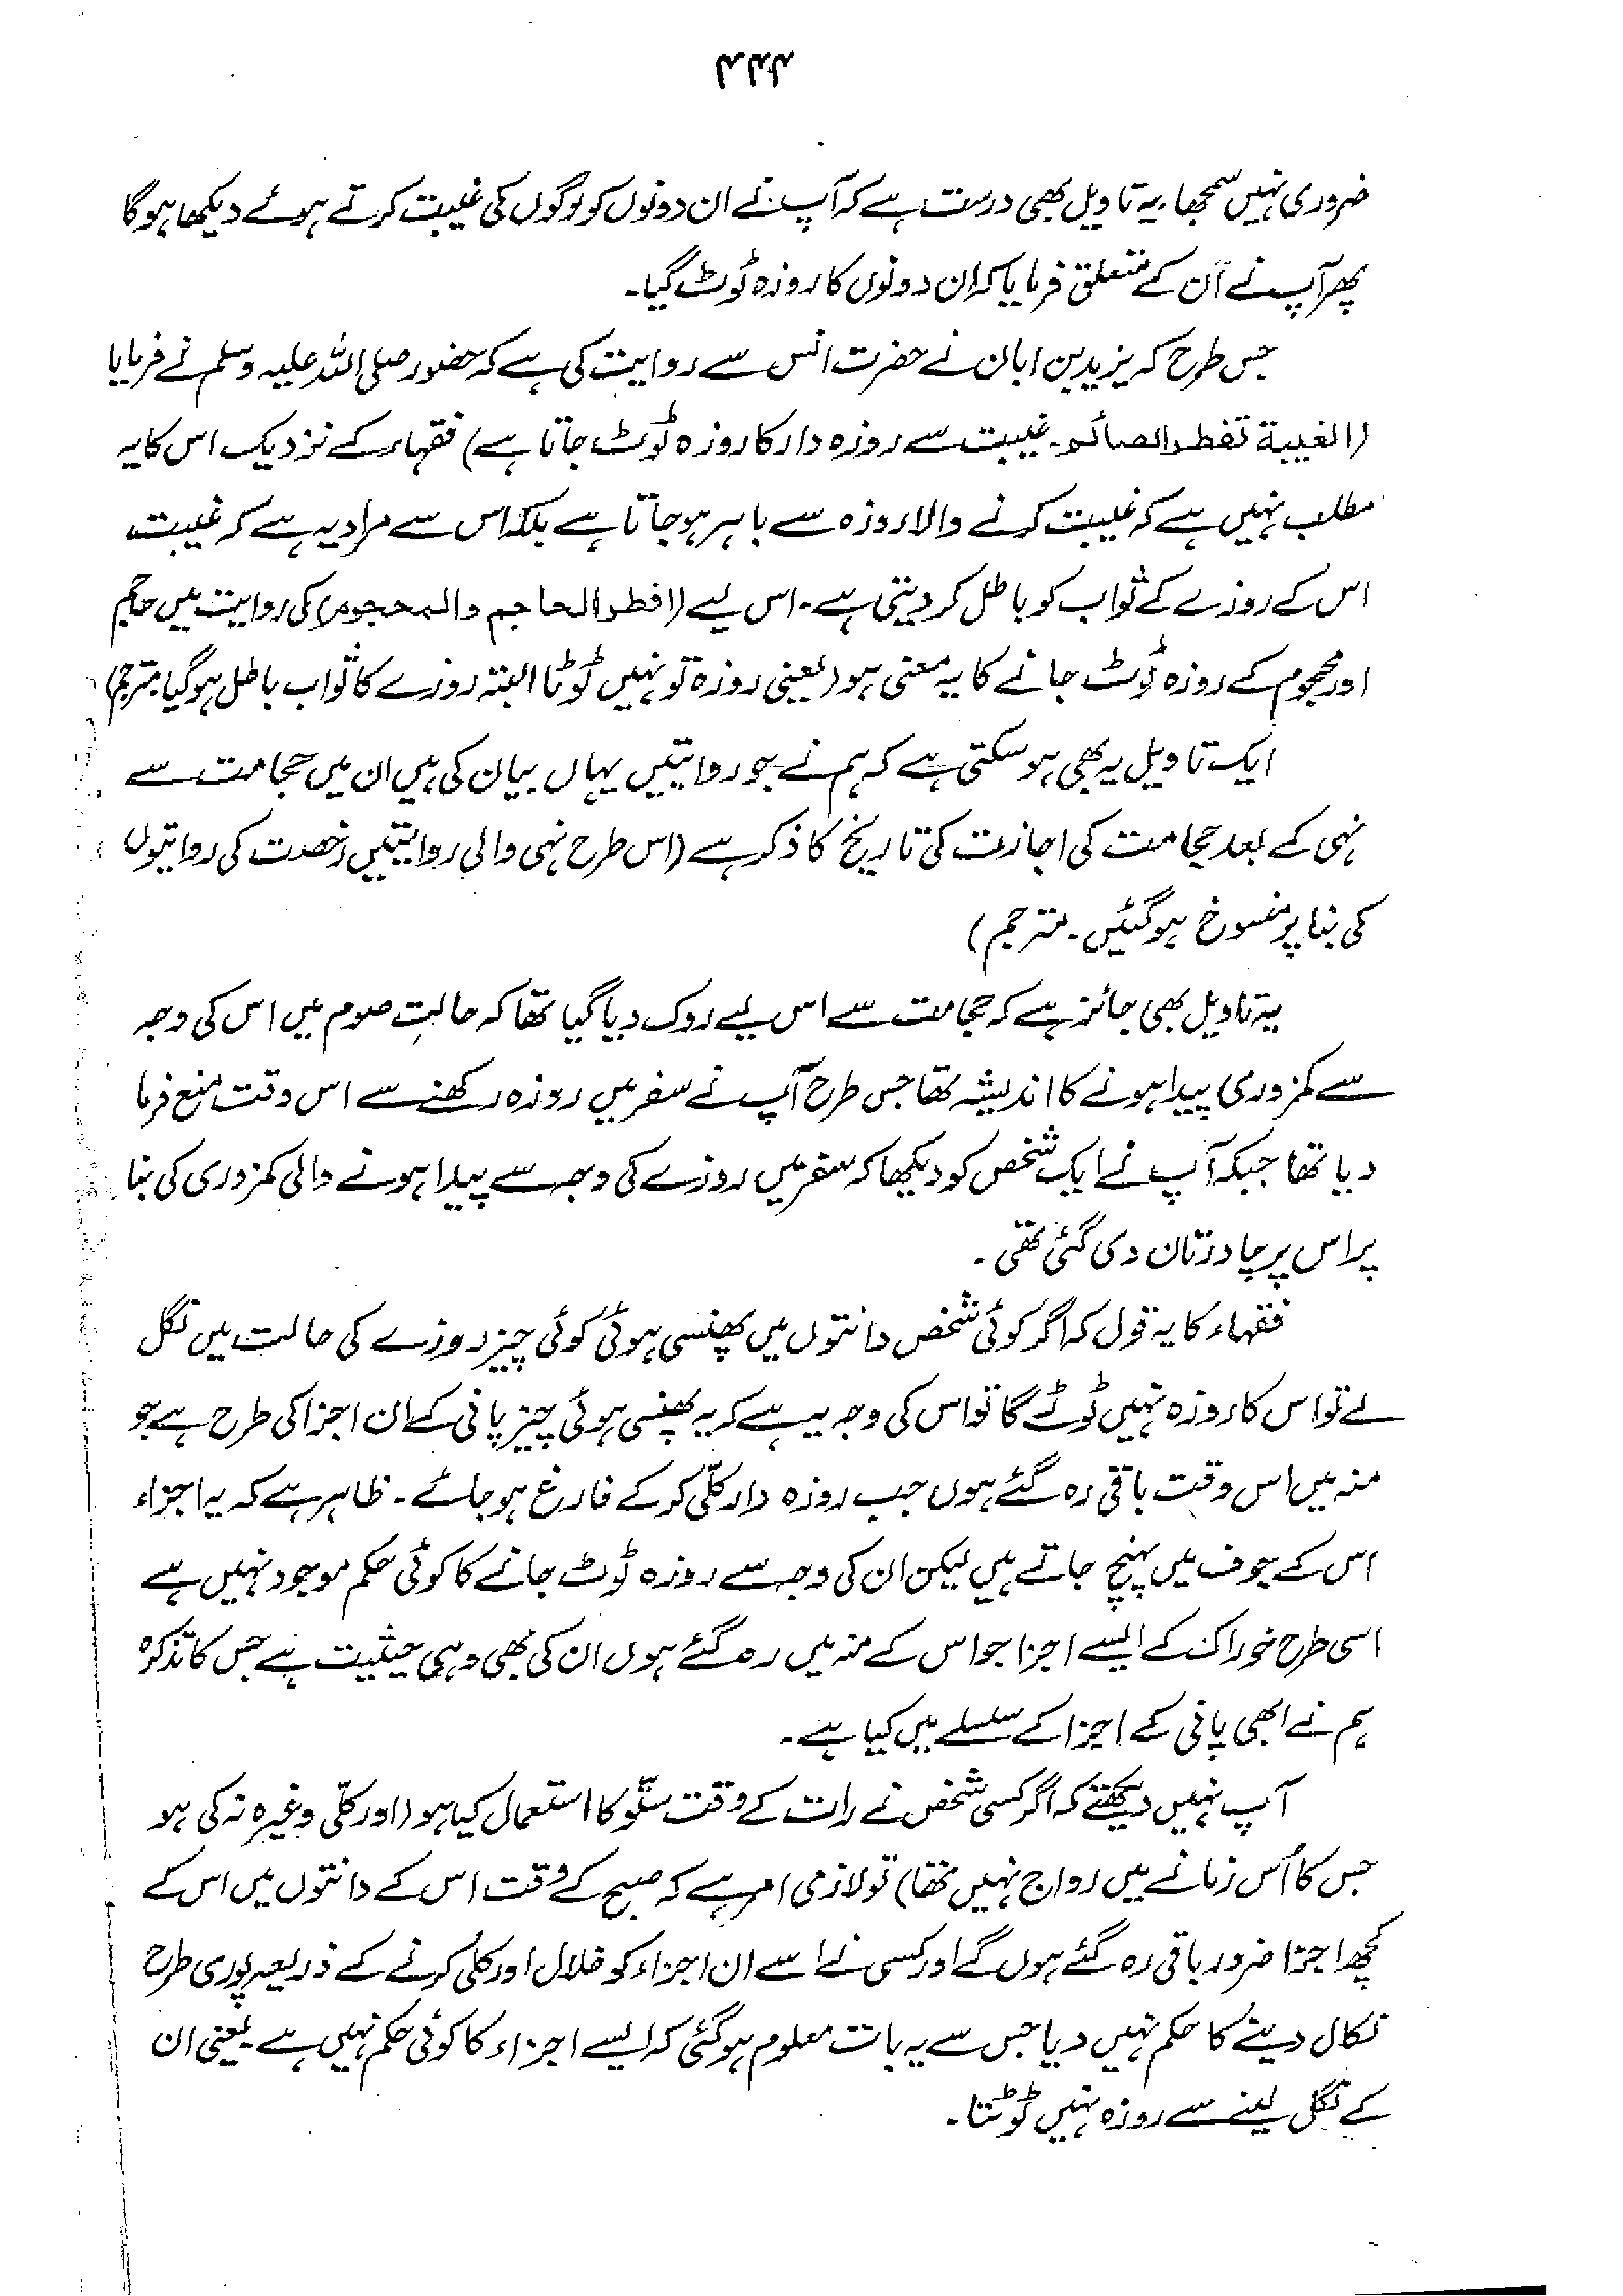 ۴۴۴
ضروری نہیں سمجھا، یہ تاویل بھی درست ہے کہ آپ نے ان دونوں کو لوگوں کی غیبت کرتے ہوئے دیکھا ہوگا
پھر آپ نے اُن کے متعلق فرمایا کہ ان دونوں کا روزہ ٹوٹ گیا۔
جس طرح کہ یزید بن ابان نے حضرت انس سے روایت کی ہے کہ حضور صلی اللہ علیہ وسلم نے فرمایا
(الغیبة تفطر الصائم۔ غیبت سے روزہ دار کا روزہ ٹوٹ جاتا ہے) فقہاء کے نزدیک اس کا یہ
مطلب نہیں ہے کہ غیبت کرنے والا روزہ سے باہر ہو جاتا ہے بلکہ اس سے مراد یہ ہے کہ غیبت
اس کے روزے کے ثواب کو باطل کر دیتی ہے۔ اس لیے (افطر الحاجم والمحجوم) کی روایت میں حاجم
اور محجوم کے روزہ ٹوٹ جانے کا یہ معنی ہو (یعنی روزہ تو نہیں ٹوٹا البتہ روزے کا ثواب باطل ہوگیا۔ مترجم)
ایک تاویل یہ بھی ہو سکتی ہے کہ ہم نے جو روایتیں یہاں بیان کی ہیں ان میں حجامت سے
نہی کے بعد حجامت کی اجازت کی تاریخ کا ذکر ہے (اس طرح نہی والی روایتیں رخصت کی روایتوں
کی بنا پر منسوخ ہوگئیں۔ مترجم)
یہ تاویل بھی جائز ہے کہ حجامت سے اس لیے روک دیا گیا تھا کہ حالتِ صوم میں اس کی وجہ
سے کمزوری پیدا ہونے کا اندیشہ تھا جس طرح آپ نے سفر میں روزہ رکھنے سے اس وقت منع فرما
دیا تھا جبکہ آپ نے ایک شخص کو دیکھا کہ سفر میں روزے کی وجہ سے پیدا ہونے والی کمزوری کی بنا
پر اس پر چادر تان دی گئی تھی۔
فقہاء کا یہ قول کہ اگر کوئی شخص دانتوں میں پھنسی ہوئی کوئی چیز روزے کی حالت میں نگل
لے تو اس کا روزہ نہیں ٹوٹے گا تو اس کی وجہ یہ ہے کہ یہ پھنسی ہوئی چیز پانی کے ان اجزا کی طرح ہے جو
منہ میں اس وقت باقی رہ گئے ہوں جب روزہ دار کلّی کر کے فارغ ہو جائے۔ ظاہر ہے کہ یہ اجزاء
اس کے جوف میں پہنچ جاتے ہیں لیکن ان کی وجہ سے روزہ ٹوٹ جانے کا کوئی حکم موجود نہیں ہے
اسی طرح خوراک کے ایسے اجزا جو اس کے منہ میں رہ گئے ہوں ان کی بھی وہی حیثیت ہے جس کا تذکرہ
ہم نے ابھی پانی کے اجزا کے سلسلے میں کیا ہے۔
آپ نہیں دیکھتے کہ اگر کسی شخص نے رات کے وقت ستّو کا استعمال کیا ہو (اور کلّی وغیرہ نہ کی ہو
جس کا اُس زمانے میں رواج نہیں تھا) تو لازمی امر ہے کہ صبح کے وقت اس کے دانتوں میں اس کے
کچھ اجزا ضرور باقی رہ گئے ہوں گے اور کسی نے اسے ان اجزاء کو خلال اور کلی کرنے کے ذریعہ پوری طرح
نکال دینے کا حکم نہیں دیا جس سے یہ بات معلوم ہوگئی کہ ایسے اجزاء کا کوئی حکم نہیں ہے یعنی ان
کے نگل لینے سے روزہ نہیں ٹوٹتا۔